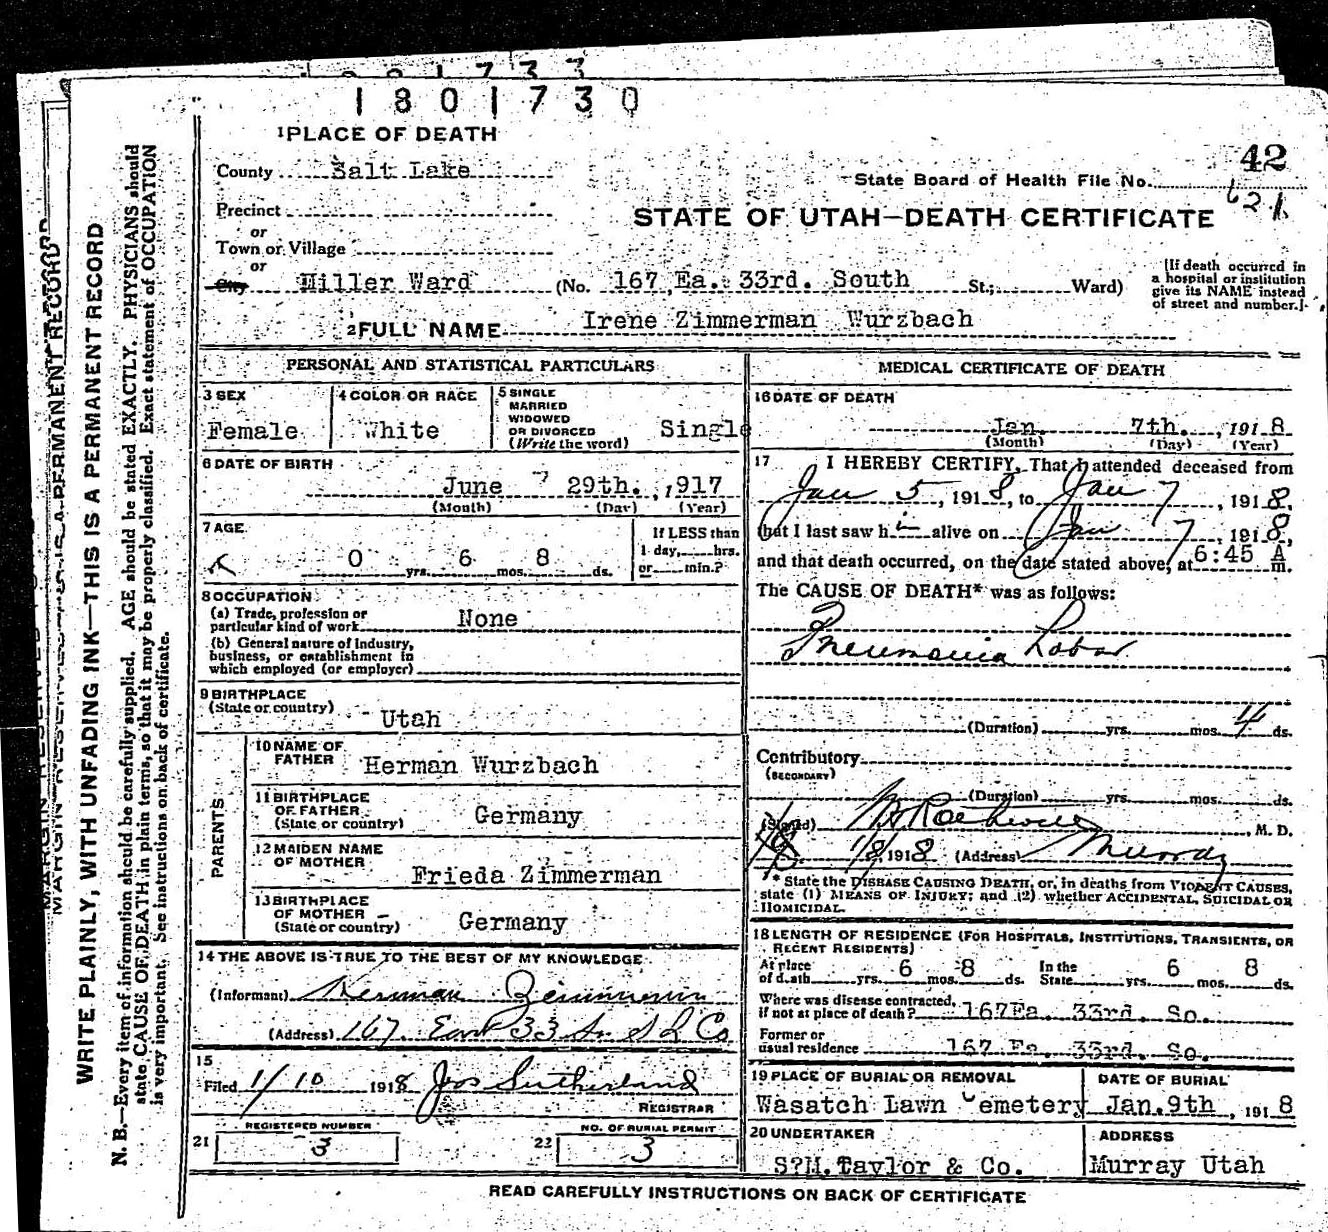 1801730
1 PLACE OF DEATH
County Salt Lake
42
State Board of Health File No. 621
Precinct
or
Town or Village
or
City Miller Ward (No. 167 Ea. 33rd. South St.; Ward)
STATE OF UTAH—DEATH CERTIFICATE
[If death occurred in
a hospital or institution
give its NAME instead
of street and number.]
2 FULL NAME Irene Zimmerman Wurzbach
PERSONAL AND STATISTICAL PARTICULARS
3 SEX
Female
4 COLOR OR RACE
White
5 SINGLE
MARRIED
WIDOWED
OR DIVORCED
(Write the word) Single
6 DATE OF BIRTH
June 29th. , 1917
(Month) (Day) (Year)
7 AGE
0 yrs. 6 mos. 8 ds.
If LESS than
1 day, hrs.
or min.?
8 OCCUPATION
(a) Trade, profession or
particular kind of work None
(b) General nature of industry,
business, or establishment in
which employed (or employer)
9 BIRTHPLACE
(State or country) Utah
PARENTS
10 NAME OF
FATHER Herman Wurzbach
11 BIRTHPLACE
OF FATHER
(State or country) Germany
12 MAIDEN NAME
OF MOTHER
Frieda Zimmerman
13 BIRTHPLACE
OF MOTHER
(State or country) Germany
14 THE ABOVE IS TRUE TO THE BEST OF MY KNOWLEDGE
(Informant) Herman Zimmerman
(Address) 167 East 33 So. S L Co
15
Filed 1/10 1918 Jos Sutherland
REGISTRAR
REGISTERED NUMBER
21 3
NO. OF BURIAL PERMIT
22 3
MEDICAL CERTIFICATE OF DEATH
16 DATE OF DEATH
Jan. 7th. , 1918
(Month) (Day) (Year)
17 I HEREBY CERTIFY, That I attended deceased from
Jan 5, 1918, to Jan 7, 1918,
that I last saw h i alive on Jan 7, 1918,
and that death occurred, on the date stated above, at 6:45 A m.
The CAUSE OF DEATH* was as follows:
Pneumonia Lobar
(Duration) yrs. mos. 4 ds.
Contributory
(SECONDARY)
(Duration) yrs. mos. ds.
(Signed) M. D.
1/8, 1918 (Address) Murray
* State the DISEASE CAUSING DEATH, or, in deaths from VIOLENT CAUSES,
state (1) MEANS OF INJURY; and (2) whether ACCIDENTAL, SUICIDAL OR
HOMICIDAL.
18 LENGTH OF RESIDENCE (FOR HOSPITALS, INSTITUTIONS, TRANSIENTS, OR
RECENT RESIDENTS)
At place
of death yrs. 6 mos. 8 ds. In the
State yrs. 6 mos. 8 ds.
Where was disease contracted,
if not at place of death? 167 Ea. 33rd. So.
Former or
usual residence 167 Ea. 33rd. So.
19 PLACE OF BURIAL OR REMOVAL
Wasatch Lawn Cemetery
DATE OF BURIAL
Jan. 9th , 1918
20 UNDERTAKER
S?M. Taylor & Co.
ADDRESS
Murray Utah
READ CAREFULLY INSTRUCTIONS ON BACK OF CERTIFICATE
WRITE PLAINLY, WITH UNFADING INK—THIS IS A PERMANENT RECORD
N. B.—Every item of information should be carefully supplied. AGE should be stated EXACTLY. PHYSICIANS should
state CAUSE OF DEATH in plain terms, so that it may be properly classified. Exact statement of OCCUPATION
is very important. See instructions on back of certificate.